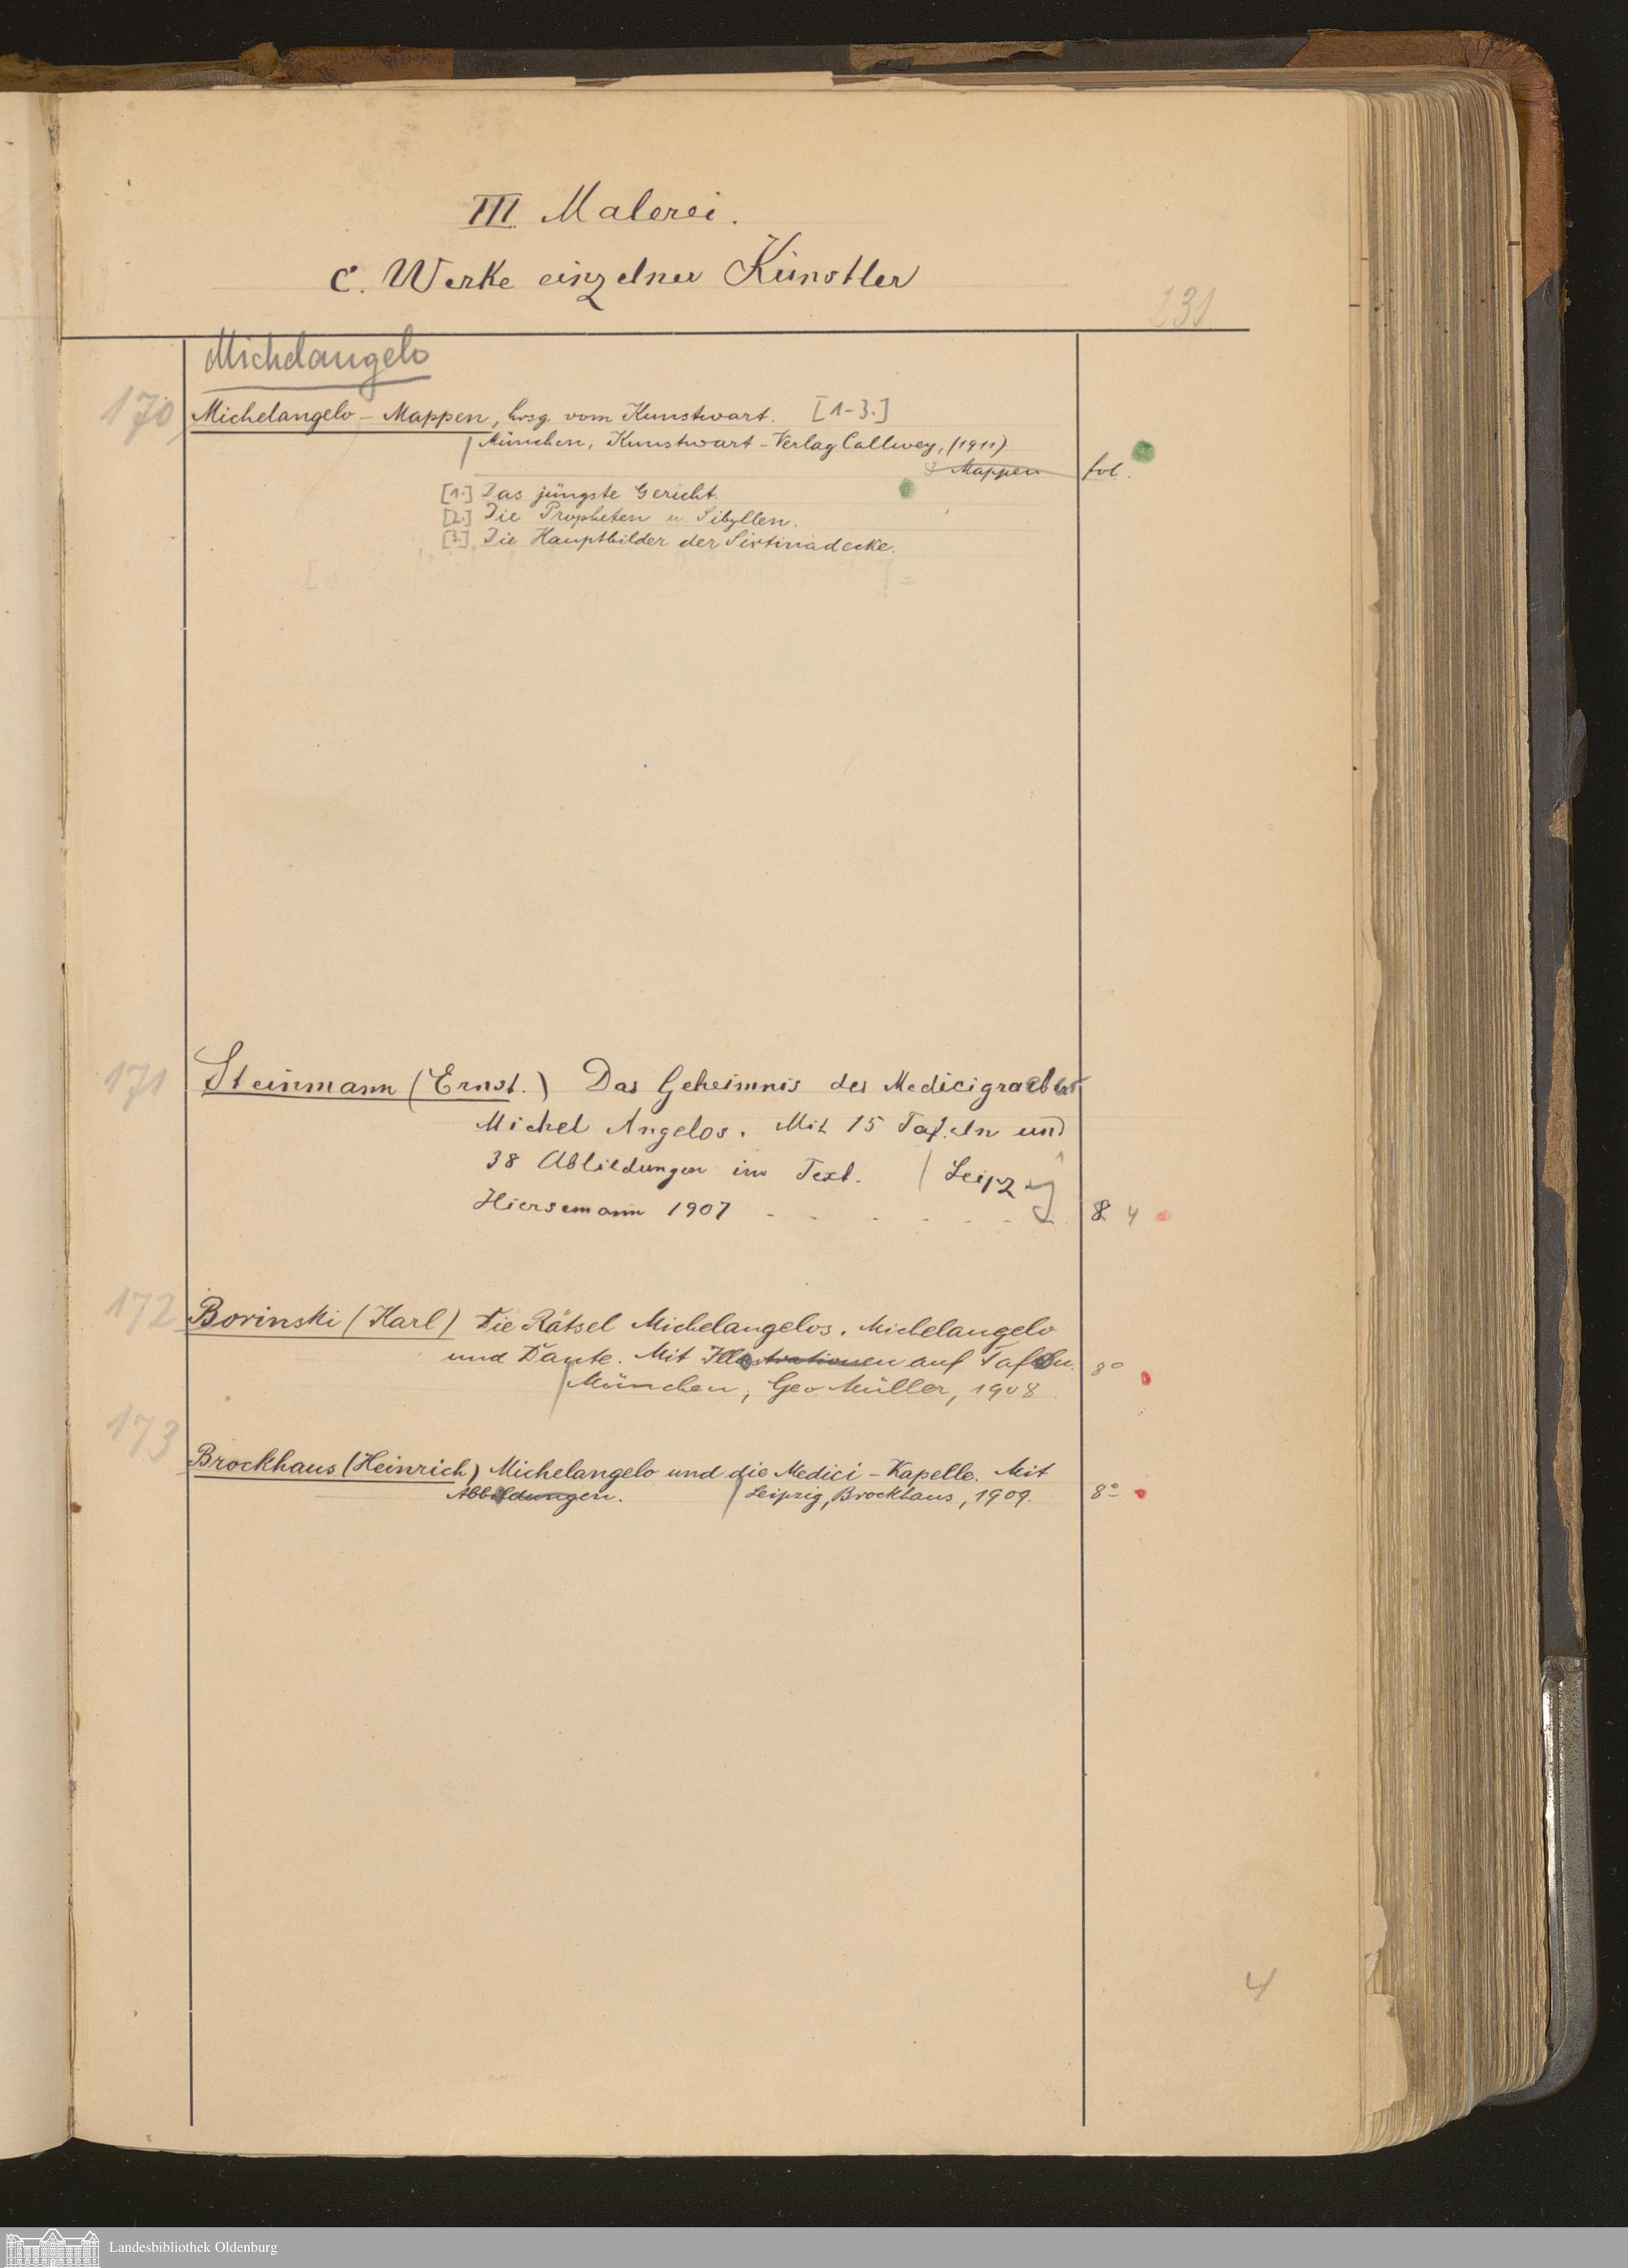 III. Malerei.
C. Werke einzelner Künstler
231
Michelangelo
170 Michelangelo-Mappen, hrsg. vom Kunstwart. [1-3.]
München, Kunstwart-Verlag Callwey, (1911)
3 Mappen fol.
[1.] Das jüngste Gericht.
[2.] Die Propheten u. Sibyllen.
[3.] Die Hauptbilder der Sixtinadecke.
171 Steinmann (Ernst.) Das Geheimnis der Medicigraeber
Michel Angelos. Mit 15 Tafeln und
38 Abbildungen im Text. Leipzig
Hiersemann 1907 - - - - - - 8 4
172 Borinski (Karl) Die Rätsel Michelangelos. Michelangelo
und Dante. Mit Illustrationen auf Tafeln. 8°
München, Geo. Müller, 1908
173 Brockhaus (Heinrich) Michelangelo und die Medici-Kapelle. Mit
Abbildungen. Leipzig, Brockhaus, 1909. 8°
4
Landesbibliothek Oldenburg